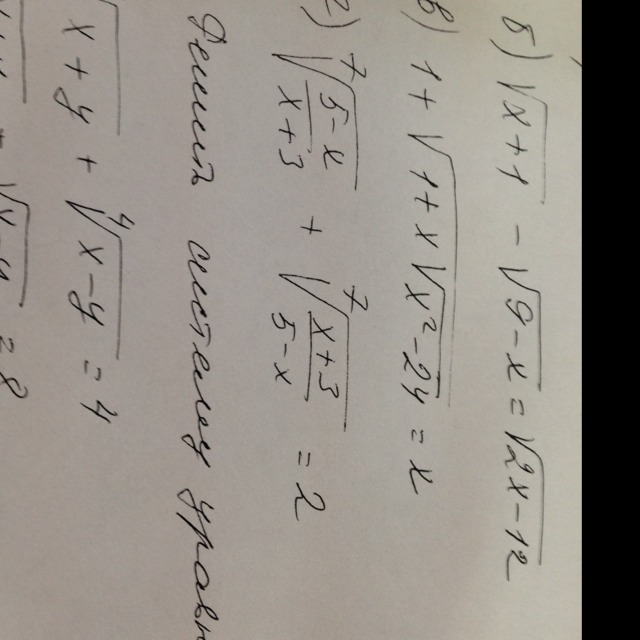 б) √(x+1) - √(9-x) = √(2x-12)
в) 1 + √(1 + x√(x²-24)) = x
г) ⁷√((5-x)/(x+3)) + ⁷√((x+3)/(5-x)) = 2
Решить систему
x + y + ⁴√(x-y) = 4
= 8